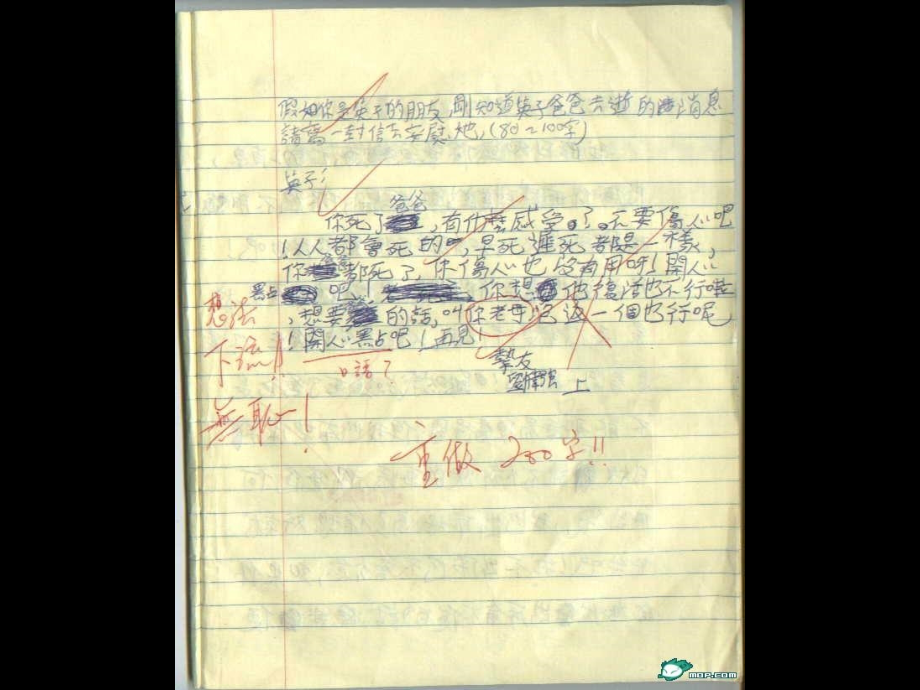 假如你是英子的朋友,剛知道英子爸爸去逝的消息
請寫一封信去安慰她,(80~100字)
英子:
爸爸
你死了,有什麼感受。了。不要傷心吧
!人人都會死的吧,早死遲死都是一樣,
你都死了,你傷心也沒有用呀!開心
點吧!你想他復活也不行啦
,想要的話,叫你老母吧返一個也行呢
!開心點吧!再見!
摯友
上
想法
下流!!
無恥!
口語?
重做 200字!!
mop.com